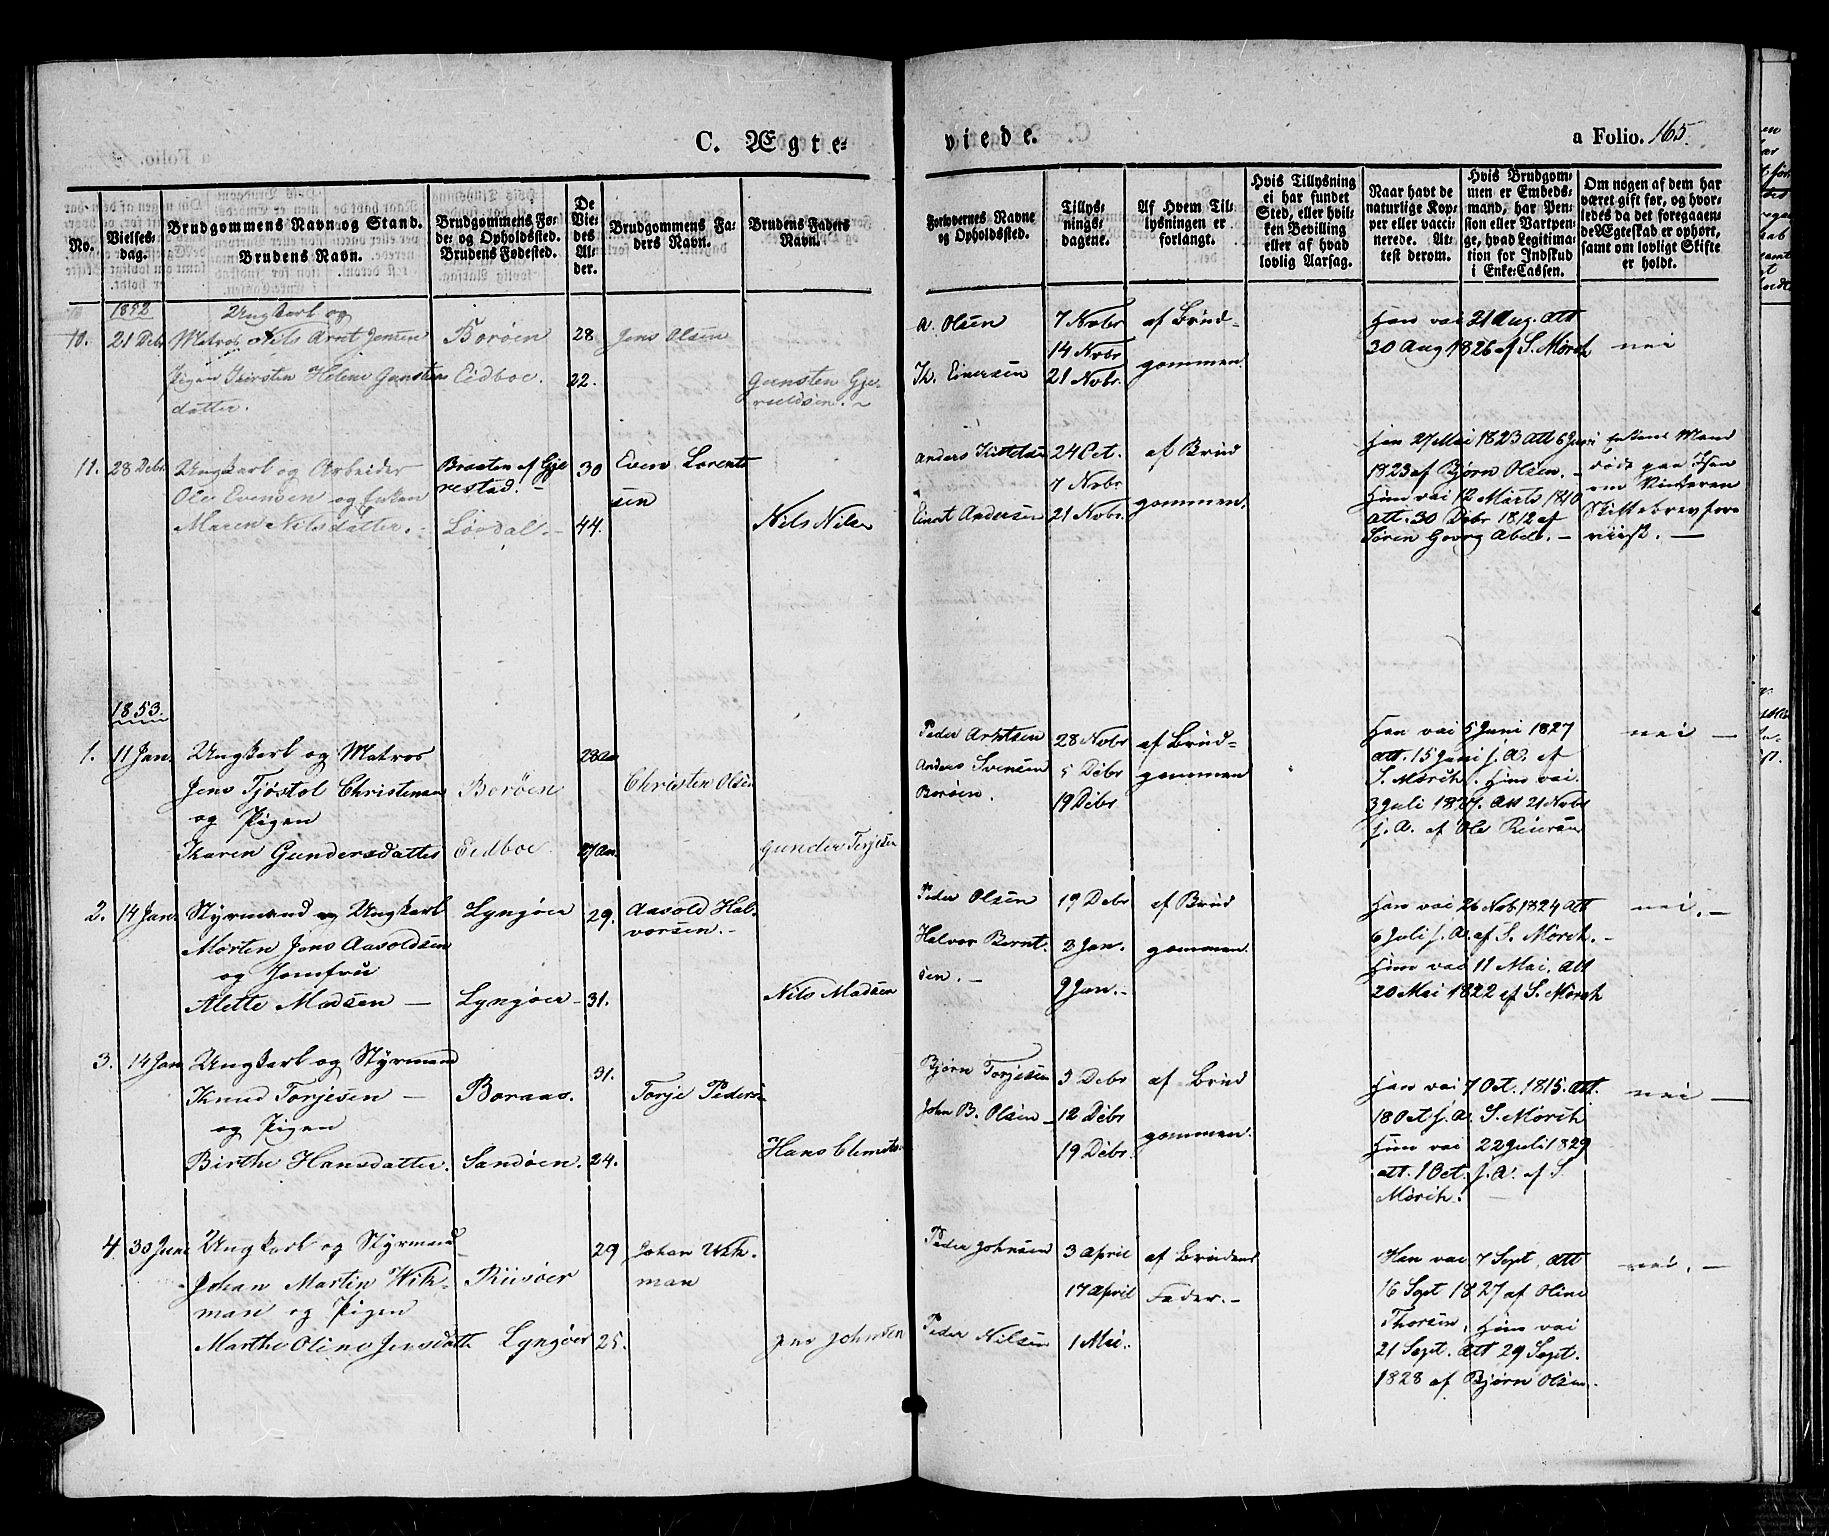 C. Ægte-
viede.
a Folio. 165.
No.
Vielses-
dag.
Brudgommens Navn og Stand.
Brudens Navn.
Brudgommens Fø-
de- og Opholdssted.
Brudens Fødested.
De
Vie-
des
Al-
der.
Brudgommens Fa-
ders Navn.
Brudens Faders
Navn.
Forlovernes Navne
og Opholdssted.
Tillys-
nings-
dagene.
Af Hvem Til-
lysningen er
forlangt.
Hvis Tillysning
ei har fundet
Sted, eller hvil-
ken Bevilling
eller af hvad
lovlig Aarsag.
Naar havt de
naturlige Kop-
per eller vacci-
nerede. At-
test derom.
Hvis Brudgom-
men er Embeds-
mand, har Pen-
sion eller Vartpen-
ge, hvad Legitima-
tion for Indskud
i Enke-Cassen.
Om nogen af dem har
været gift før, og hvor-
ledes da det foregaaen-
de Ægteskab er ophørt,
samt om lovligt Skifte
er holdt.
1852
10. 21 Debr
Ungkarl og
Matros Nils Arnt Jensen
Pigen Kirsten Helene Gunstens
datter.
Borøen
Eidboe.
28
22.
Jens Olsen
Gunsten Gje-
ruldsen. -
A. Olsen
Th. Einersen
7 Novbr
14 Novbr
21 Novbr.
af Brud-
gommen.
Han vac 21 Aug. Att
30 Aug 1826 af S. Mørch
nei
11. 28 Debr
Ungkarl og Arbeider
Ole Evensen og Enken
Maren Nilsdatter. -
Braaten af Gje
restad. -
Lövdal. -
30
44.
Even Lorents
sen
Nils Nilsen
Anders Kittelsen
Einert Andersen
24 Oct.
7 Novbr
21 Novbr.
af Brud
gommen.
Han 27 Mai 1823 Att 6 Juni
1823 af Bjørn Olsen. -
Hun vac 12 Marts 1810
att. 30 Debr 1812 af
Søren Georg Abel. -
Enkens Mand
døde paa
om Vinteren
Skiftebrev fore
viist. -
1853.
1. 11 Jan.
Ungkarl og Matros
Jens Tjøstol Christensen
og Pigen
Karen Gundersdatter
Borøen
Eidboe.
28 Aar
27 Aar.
Christen Olsen
Gunder Terjesen
Peder Arntsen
Anders Svensen
Borøen.
28 Novbr
5 Debr
19 Debr
af Brud-
gommen
Han vac 5 Juni 1827
att. 15 Juni s. A. af
S. Mørch. Hun vac.
3 Juli 1827. Att 21 Novbr
s. A. af Ole Reiersen
nei -
2. 14 Jan.
Styrmand og Ungkarl
Morten Jens Aasoldsen
og Jomfru
Alette Madsen -
Lyngöer
Lyngöer -
29.
31.
Aasold Hal-
vorsen. -
Nils Madsen
Peder Olsen
Halvor Bernt-
sen. -
19 Debr
2 Jan.
9 Jan. -
af Brud
gommen.
Han vac 26 Nob. 1824 Att
6 Juli s. A. af S. Mörch. -
Hun vac 11 Mai. Att
20 Mai 1822 af S. Mörch
nei. -
3. 14 Jan
Ungkarl og Styrmand
Knud Torjesen -
og Pigen
Birthe Hansdatter.
Boraas.
Sandöen.
31.
24.
Torje Peders.
Hans Clemets.
Bjørn Torjesen
John B. Olsen -
5 Debr
12 Debr
19 Debr.
af Brud
gommen.
Han vac 7 Oct. 1815. Att.
18 Oct s. A. S. Mörch
Hun vac 22 Juli 1829
att. 1 Oct. s. A. af S
Mörch.
nei -
4. 30 Juni
Ungkarl og Styrmand
Johan Martin Wik-
man og Pigen
Marthe Oline Jensdatt
Riisöer
Lyngöer
29
25.
Johan Wik-
man
Jens Johnsen
Peder Johnsen
Peder Nilsen
3 April
17 April
1 Mai.
af Brudens
Fader. -
Han vac 7 Sept. Att
16 Sept 1827 af Oline
Thorsen. Hun vac
21 Sept. Att 29 Sept.
1828 af Bjørn Olsen.
nei. -